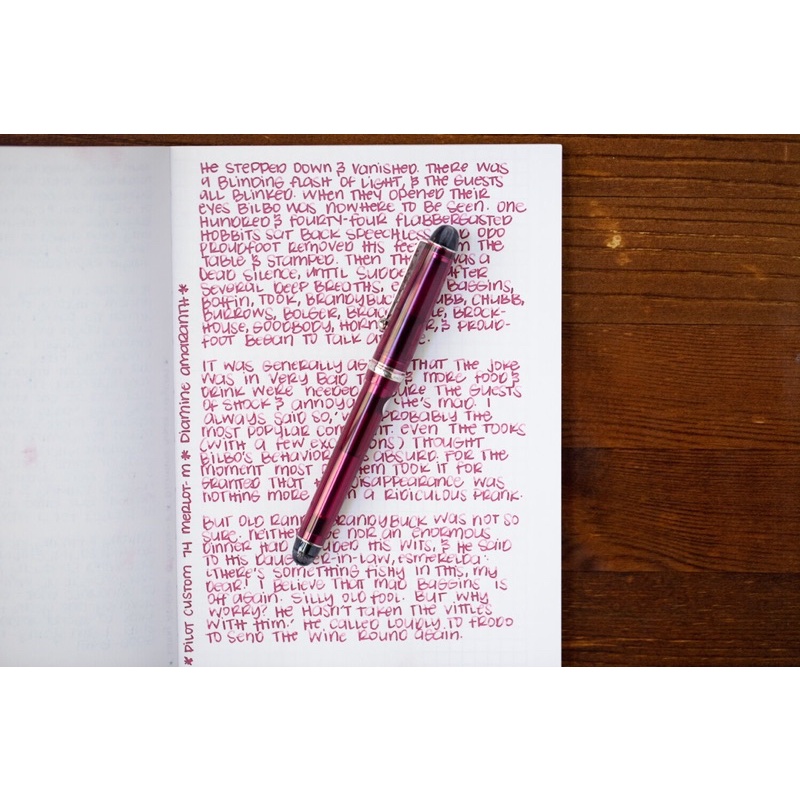 He stepped down & vanished. There was
a blinding flash of light, & the guests
all blinked. When they opened their
eyes Bilbo was nowhere to be seen. One
hundred & fourty-four flabbergasted
hobbits sat back speechless. Odo
Proudfoot removed his fee the
table & stamped. Then th was a
dead silence, until sudde after
several deep breaths, Baggins,
Boffin, Took, Brandybuc ubb, Chubb,
Burrows, Bolger, Brac le, Brock-
house, Goodbody, Horn r, & Proud-
foot began to talk a e.
It was generally ag that the joke
was in very bad t & more food &
drink were needed ure the guests
of shock & annoya 'He's mad. I
always said so,' w probably the
most popular com t. Even the Tooks
(with a few exc ions) thought
Bilbo's behavior absurd. For the
moment most em took it for
granted that disappearance was
nothing more n a ridiculous prank.
But old Ror randybuck was not so
sure. Neither e nor an enormous
dinner had uded his wits, & he said
to his daug er-in-law, Esmerelda:
'There's something fishy in this, my
dear! I believe that mad Baggins is
off again. Silly old fool. But why
worry? He hasn't taken the vittles
with him.' He called loudly to Frodo
to send the wine round again.
* Pilot Custom 74 Merlot-M * Diamine Amaranth *